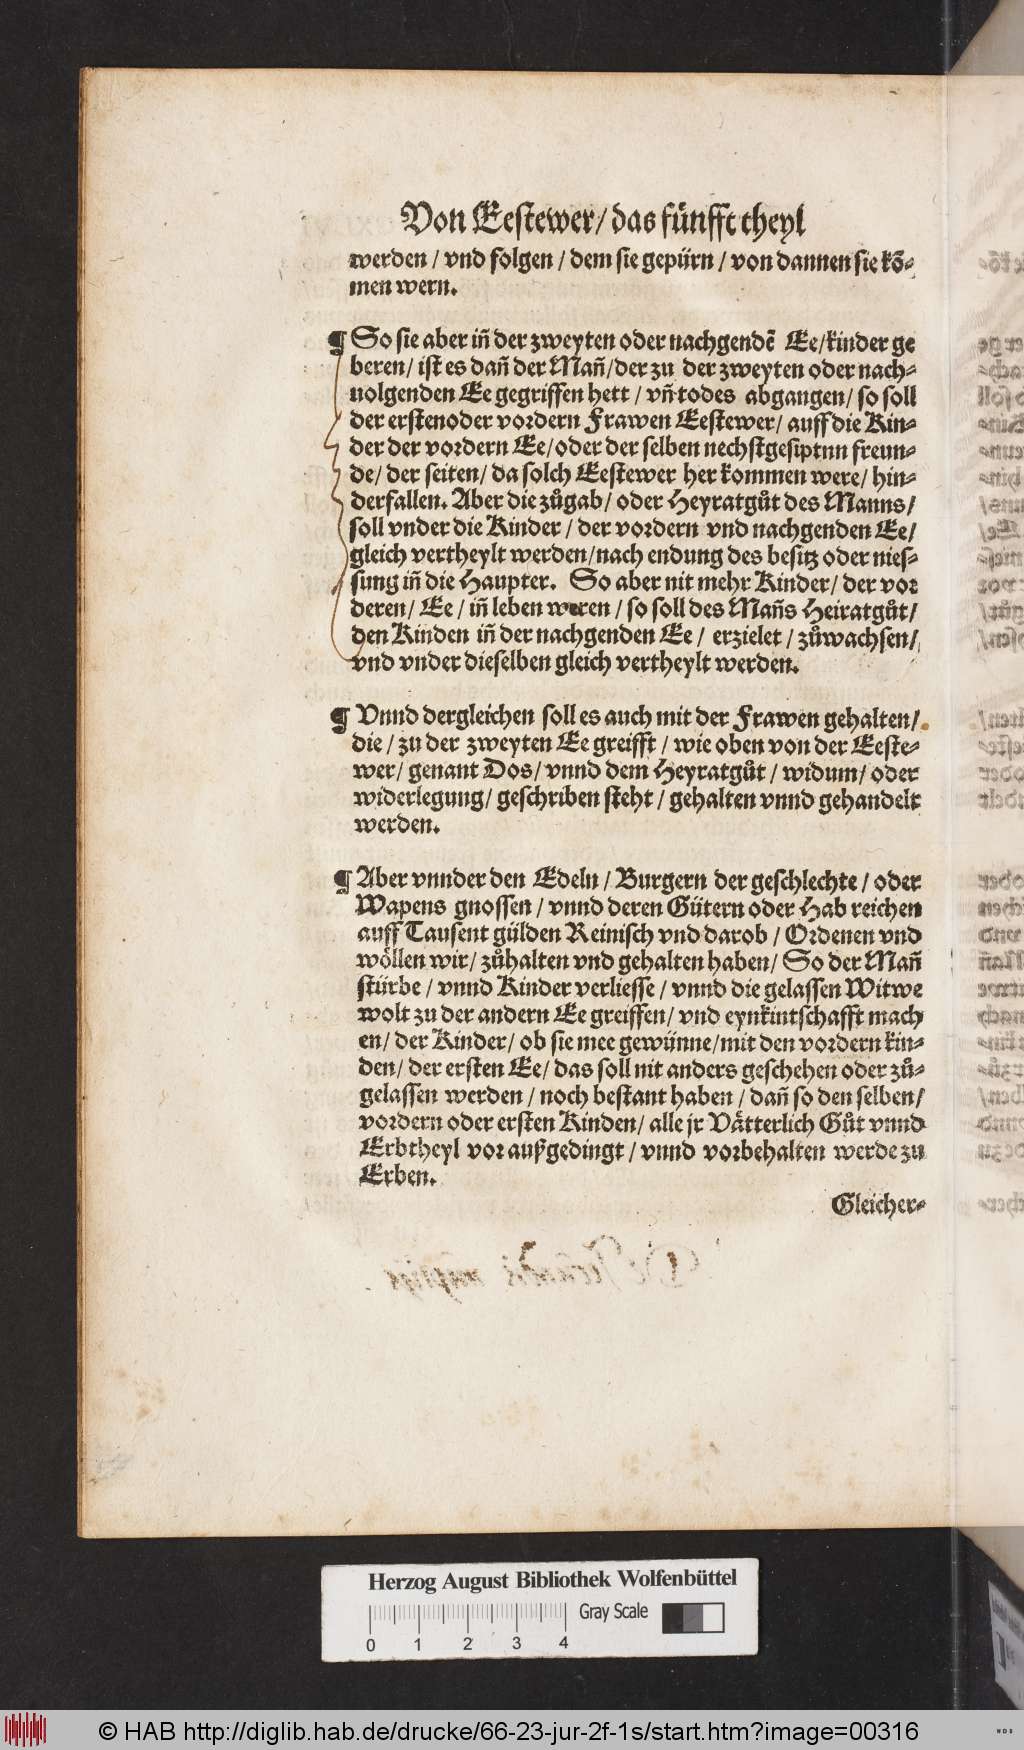 Von Eestewer/ das fünfft theyl
werden / vnd folgen / dem sie gepürn / von dannen sie kõ-
men wern.
¶ So sie aber in̄ der zweyten oder nachgendē Ee/kinder ge
beren/ ist es dan̄ der Man̄/der zu der zweyten oder nach-
uolgenden Ee gegriffen hett / vn̄ todes abgangen/ so soll
der erstenoder vordern Frawen Eestewer/ auff die Kin-
der der vordern Ee/oder der selben nechstgesiptnn freun-
de/ der seiten/ da solch Eestewer her kommen were/ hin-
derfallen. Aber die zůgab/ oder Heyratgůt des Manns/
soll vnder die Kinder / der vordern vnd nachgenden Ee/
gleich vertheylt werden/nach endung des besitz oder nies-
sung in̄ die Haupter. So aber nit mehr Kinder/ der vor
deren/ Ee / in̄ leben weren / so soll des Man̄s Heiratgůt/
den Kinden in̄ der nachgenden Ee / erzielet / zůwachsen/
vnd vnder dieselben gleich vertheylt werden.
¶ Vnnd dergleichen soll es auch mit der Frawen gehalten/
die / zu der zweyten Ee greifft / wie oben von der Eeste-
wer/ genant Dos/ vnnd dem Heyratgůt / widum/ oder
widerlegung/ geschriben steht / gehalten vnnd gehandelt
werden.
¶ Aber vnnder den Edeln / Burgern der geschlechte / oder
Wapens gnossen / vnnd deren Gütern oder Hab reichen
auff Tausent gülden Reinisch vnd darob / Ordenen vnd
wöllen wir/ zůhalten vnd gehalten haben/ So der Man̄
stürbe / vnnd Kinder verliesse / vnnd die gelassen Witwe
wolt zu der andern Ee greiffen/ vnd eynkintschafft mach
en/ der Kinder/ ob sie mee gewünne/mit den vordern kin-
den/ der ersten Ee/ das soll nit anders geschehen oder zů-
gelassen werden / noch bestant haben / dan̄ so den selben/
vordern oder ersten Kinden/ alle jr Vätterlich Gůt vnnd
Erbtheyl vor außgedingt / vnnd vorbehalten werde zu
Erben.
Gleicher-
Herzog August Bibliothek Wolfenbüttel
Gray Scale
0 1 2 3 4
© HAB http://diglib.hab.de/drucke/66-23-jur-2f-1s/start.htm?image=00316